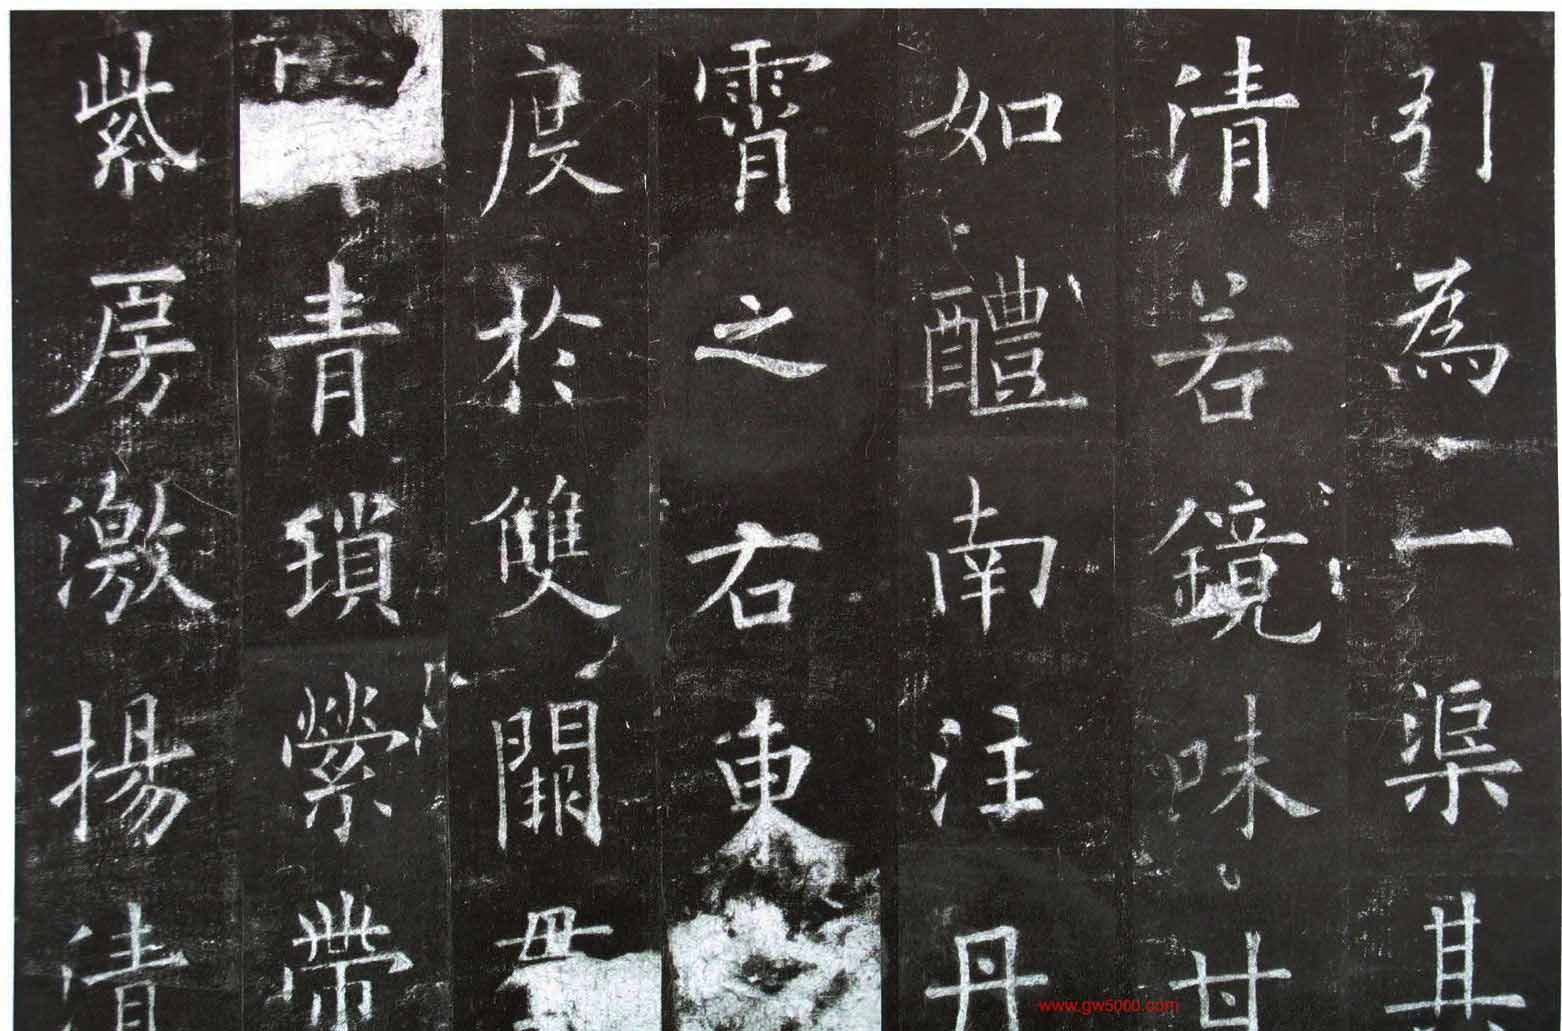 引為一渠其
清若鏡味甘
如醴南注丹
霄之右東
度於雙闕
青瑣縈帶
紫房激揚清
www.gw5000.com